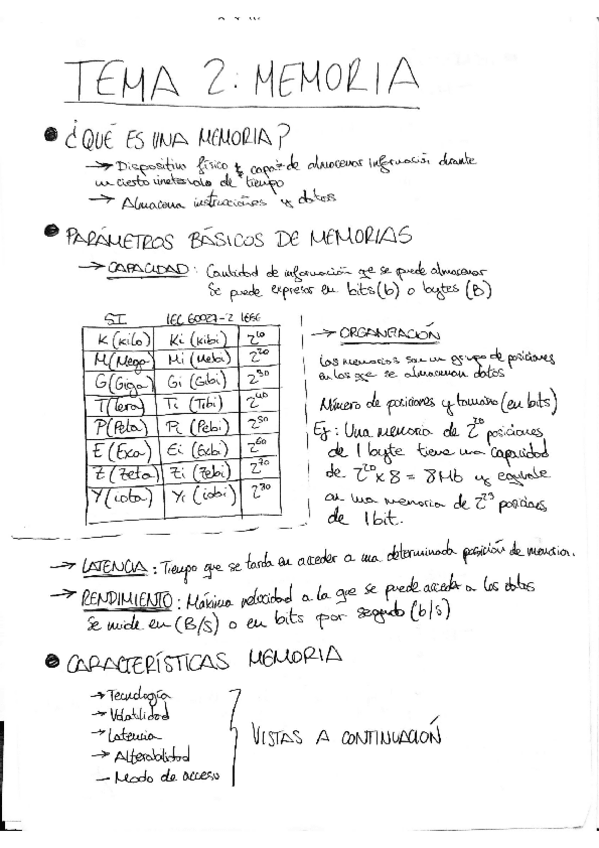 TEMA 2: MEMORIA
¿QUÉ ES UNA MEMORIA?
→ Dispositivo físico capaz de almacenar información durante
un cierto de tiempo
→ Almacena instrucciones y datos
PARÁMETROS BÁSICOS DE MEMORIAS
→ CAPACIDAD: Cantidad de información que se puede almacenar
Se puede expresar en bits (b) o bytes (B)
SI IEC 60027-2
K (Kilo) Ki (Kibi) 2^10
M (Mega) Mi (Mebi) 2^20
G (Giga) Gi (Gibi) 2^30
T (Tera) Ti (Tibi) 2^40
P (Peta) Pi (Pebi) 2^50
E (Exa) Ei (Exbi) 2^60
Z (Zeta) Zi (Zebi) 2^70
Y (iota) Yi (iobi) 2^80
→ ORGANIZACIÓN
Las memorias son un grupo de posiciones
en los que se almacenan datos
Número de posiciones y tamaño (en bits)
Ej: Una memoria de 2^20 posiciones
de 1 byte tiene una capacidad
de 2^20 x 8 = 8Mb y equivale
a una memoria de 2^23 posiciones
de 1 bit.
→ LATENCIA: Tiempo que se tarda en acceder a una determinada posición de memoria.
→ RENDIMIENTO: Máxima velocidad a la que se puede acceder a los datos
Se mide en (B/s) o en bits por segundo (b/s)
CARACTERÍSTICAS MEMORIA
→ Tecnología
→ Volatilidad
→ Latencia
→ Alterabilidad
— Modo de acceso
VISTAS A CONTINUACIÓN